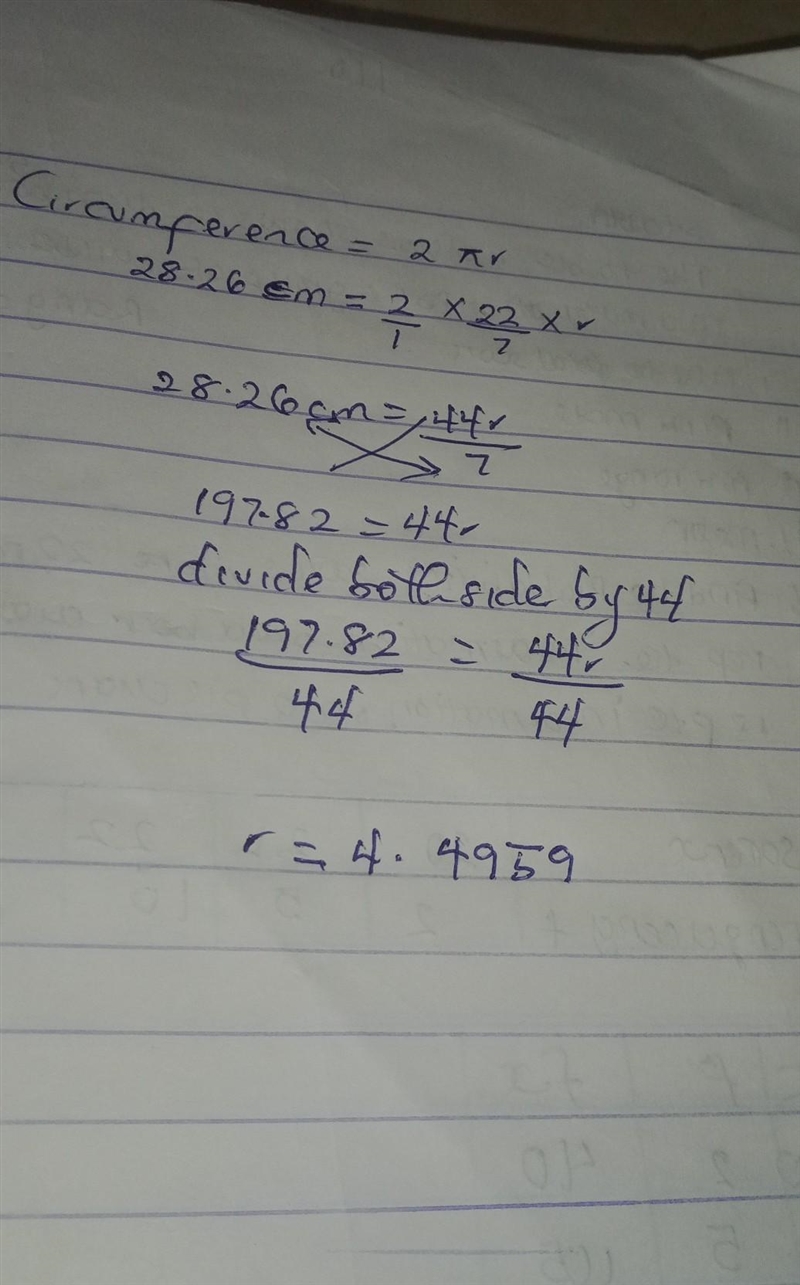 Circumference = 2 πr
28.26 cm = 2/1 × 22/7 × r
28.26 cm = 44r/7
197.82 = 44r
divide both side by 44
197.82/44 = 44r/44
r = 4.4959